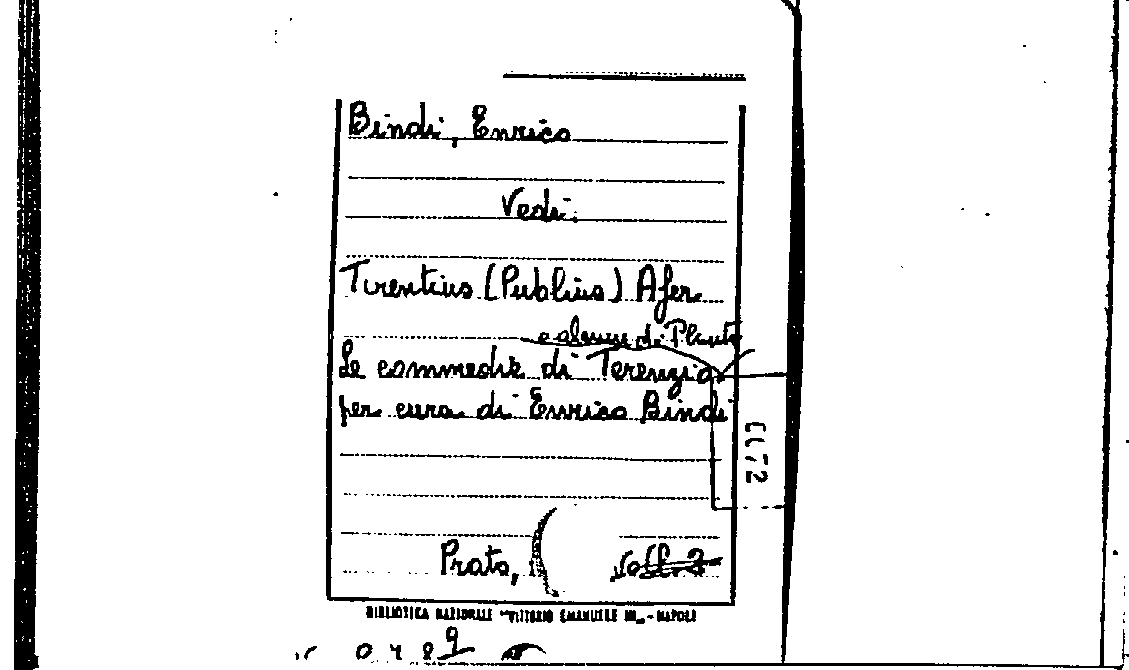 Bindi, Enrico
Vedi:
Terentius (Publius) Afer
e alcune di Plauto
Le commedie di Terenzio
per cura di Enrico Bindi
Prato,
Voll. 2
BIBLIOTECA NAZIONALE "VITTORIO EMANUELE III" - NAPOLI